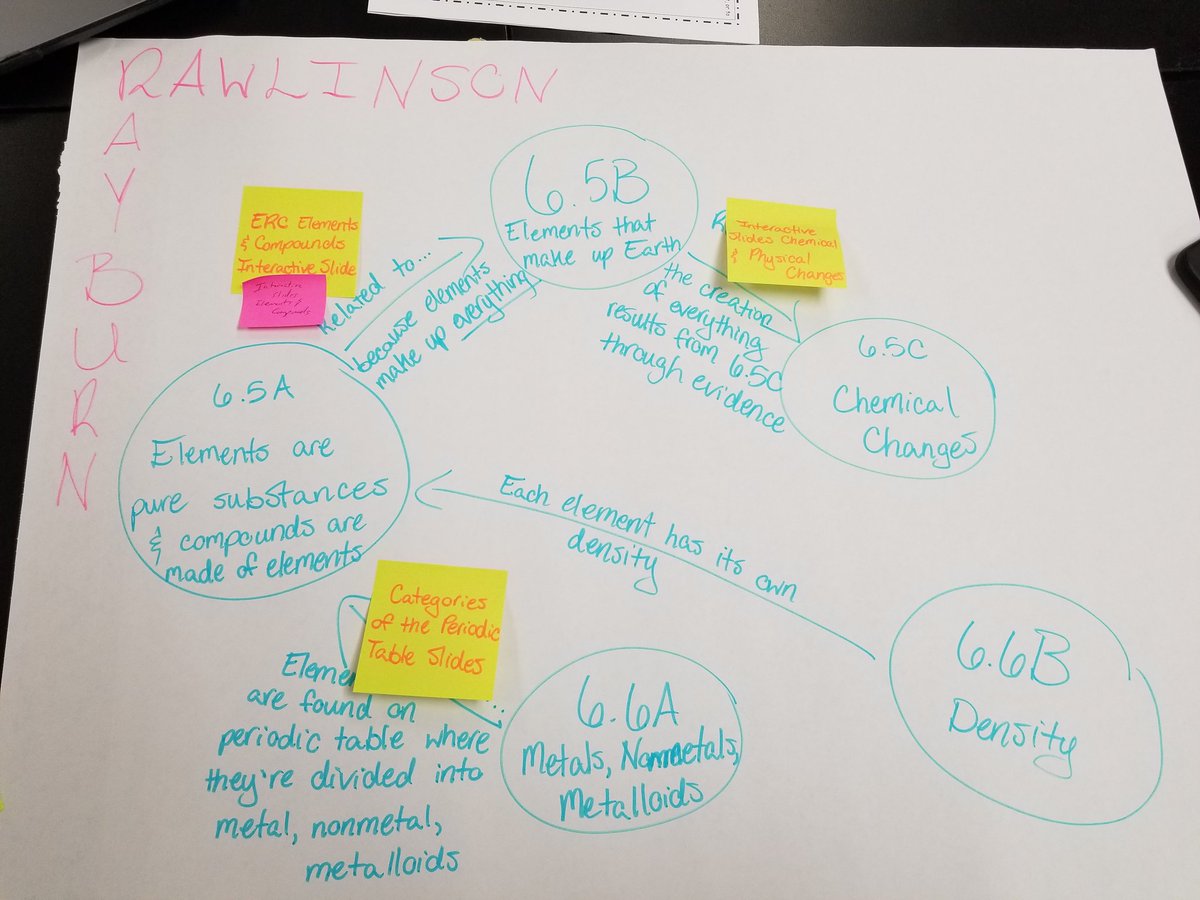 RAWLINSON
RAYBURN
6.5B
Elements that
make up Earth
ERC Elements
& Compounds
Interactive Slide
Interactive
Slides
Elements &
Compounds
Related to...
because elements
make up everything
Interactive
Slides Chemical
& Physical
Changes
the creation
of everything
results from 6.5C
through evidence
6.5C
Chemical
Changes
6.5A
Elements are
pure substances
& compounds are
made of elements
Each element has its own
density
Categories
of the Periodic
Table Slides
are found on
periodic table where
they're divided into
metal, nonmetal,
metalloids
6.6A
Metals, Nonmetals,
Metalloids
6.6B
Density